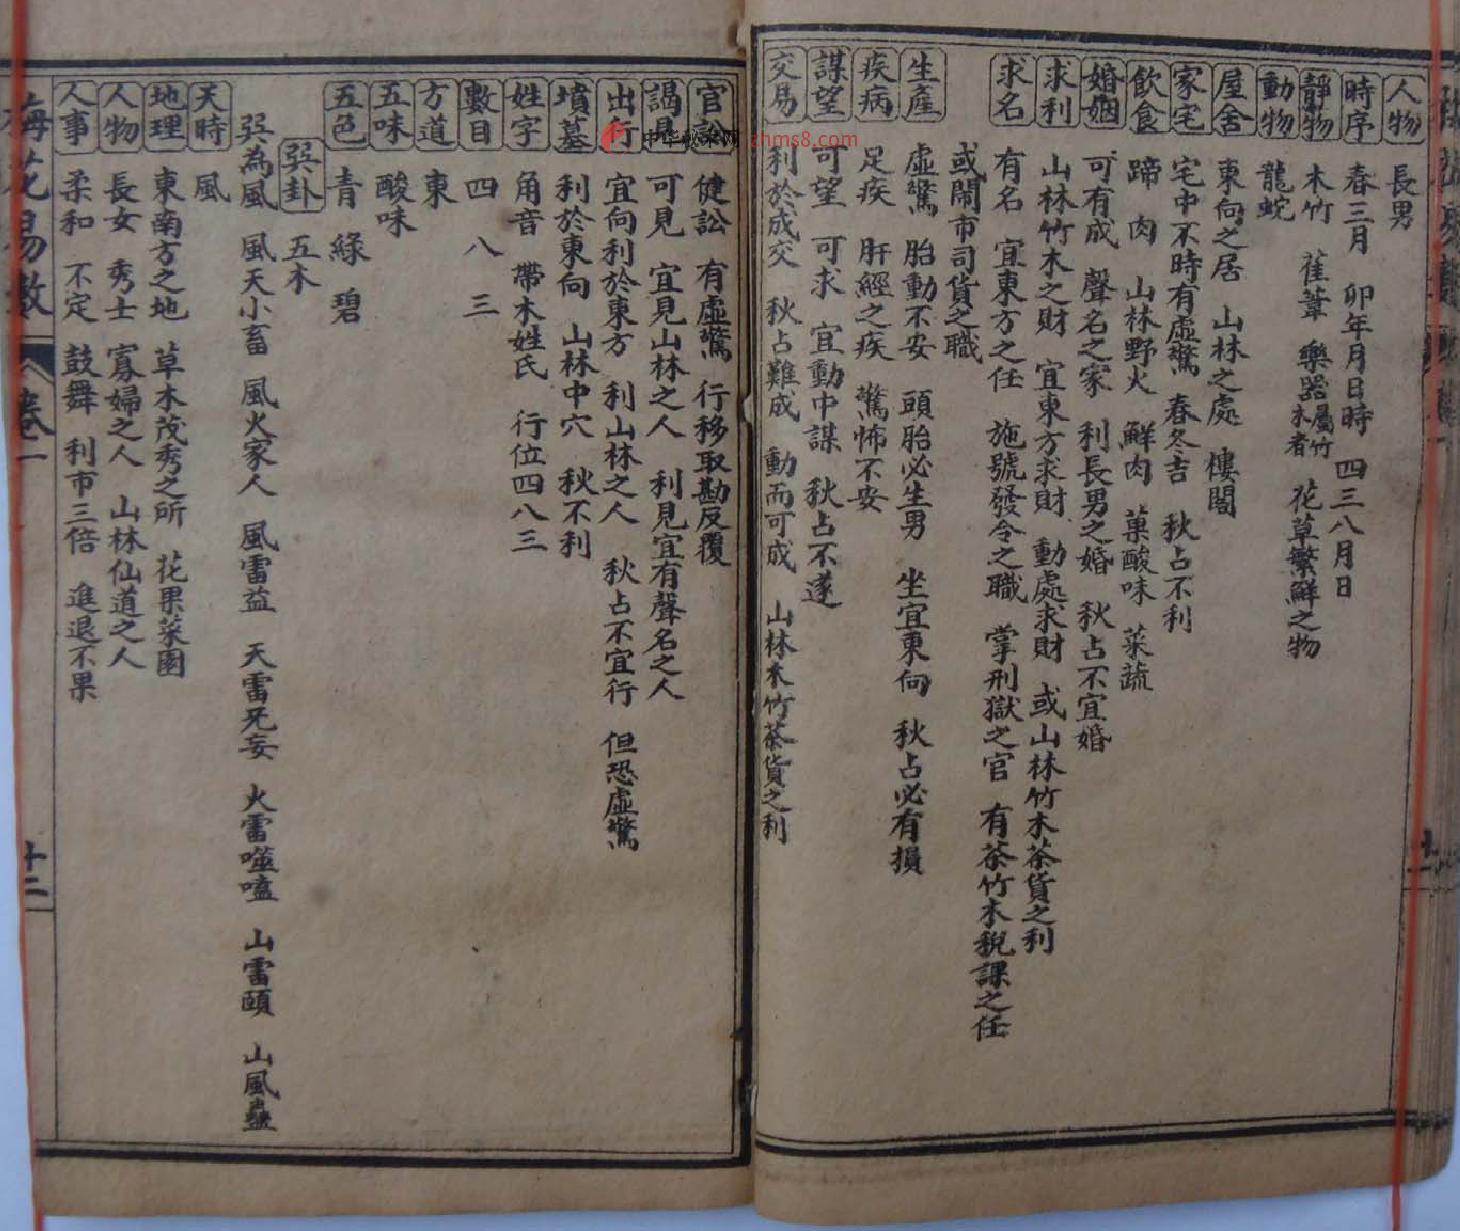 人物 長男
時序 春三月 卯年月日時 四三八月日
靜物 木竹 萑葦 樂器屬竹木者 花草繁鮮之物
動物 龍蛇
屋舍 東向之居 山林之處 樓閣
家宅 宅中不時有虛驚 春冬吉 秋占不利
飲食 蹄 肉 山林野火 鮮肉 菓酸味 菜蔬
婚姻 可有成 聲名之家 利長男之婚 秋占不宜婚
求利 山林竹木之財 宜東方求財 動處求財 或山林竹木茶貨之利
求名 有名 宜東方之任 施號發令之職 掌刑獄之官 有茶竹木稅課之任
或鬧市司貨之職
生產 虛驚 胎動不安 頭胎必生男 坐宜東向 秋占必有損
疾病 足疾 肝經之疾 驚怖不安
謀望 可望 可求 宜動中謀 秋占不遂
交易 利於成交 秋占難成 動而可成 山林木竹茶貨之利
官訟 健訟 有虛驚 行移取勘反覆
謁見 可見 宜見山林之人 利見宜有聲名之人
出行 宜向利於東方 利山林之人 秋占不宜行 但恐虛驚
墳墓 利於東向 山林中穴 秋不利
姓字 角音 帶木姓氏 行位四八三
數目 四 八 三
方道 東
五味 酸味
五色 青 綠 碧
巽卦 五木
巽為風 風天小畜 風火家人 風雷益 天雷旡妄 火雷噬嗑 山雷頤 山風蠱
天時 風
地理 東南方之地 草木茂秀之所 花果菜園
人物 長女 秀士 寡婦之人 山林仙道之人
人事 柔和 不定 鼓舞 利市三倍 進退不果
梅花易數 卷一 十二
zhms8.com